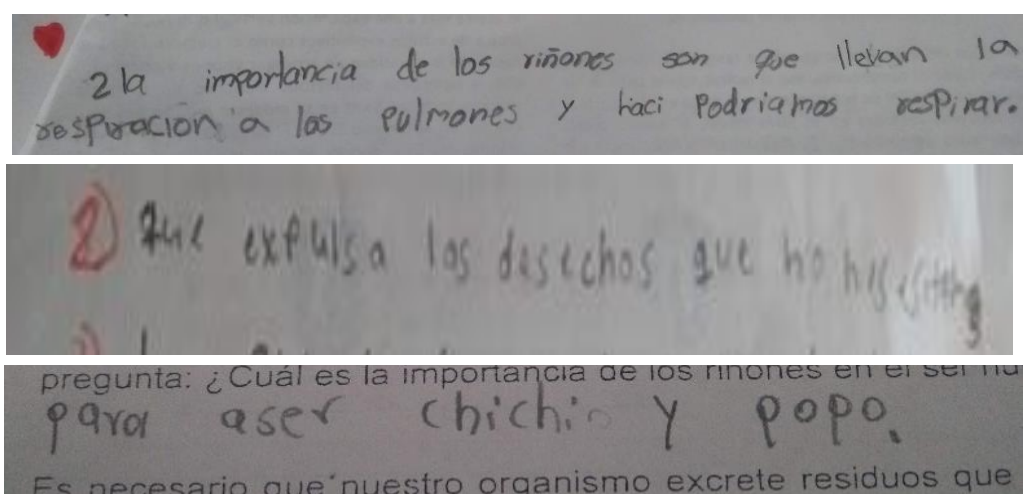 2 la importancia de los riñones son que llevan la
respiracion a los pulmones y haci Podriamos respirar.
2) que expulsa los desechos que no
pregunta: ¿Cuál es la importancia de los riñones en el ser hu
para aser chichi y popo.
Es necesario que nuestro organismo excrete residuos que